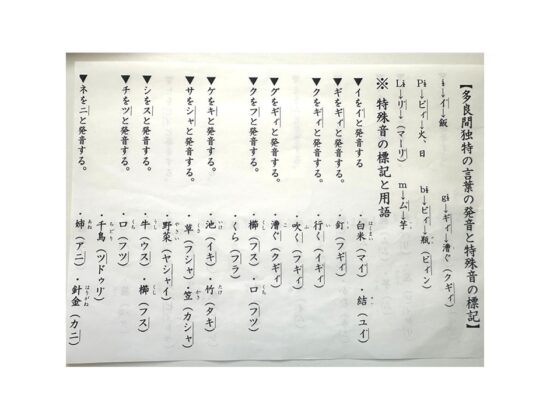 【多良間独特の言葉の発音と特殊音の標記】
ɨ→イ→飯　gɨ→ギィ→漕ぐ（クギィ）
Pɨ→ピィ→火、日　bɨ→ビィ→瓶（ビィン）
Lɨ→リ→（マーリ）　m→ム→芋
※ 特殊音の標記と用語
▼イをイと発音する　・白米（マイ）・結（ユイ）
▼ギをギィと発音する。　・釘（フギィ）
▼クをギィと発音する。　・行く（イギィ）
・吹く（フギィ）
▼グをギィと発音する。　・漕ぐ（クギィ）
▼クをフと発音する。　・櫛（フス）・口（フツ）
・くら（フラ）
▼ケをキと発音する。　・池（イキ）・竹（タキ）
▼サをシャと発音する。　・草（フシャ）・笠（カシャ）
野菜（ヤシャイ）
▼シをスと発音する。　・牛（ウス）・櫛（フス）
▼チをツと発音する。　・口（フツ）
・千鳥（ツドゥリ）
▼ネをニと発音する。　・姉（アニ）・針金（カニ）